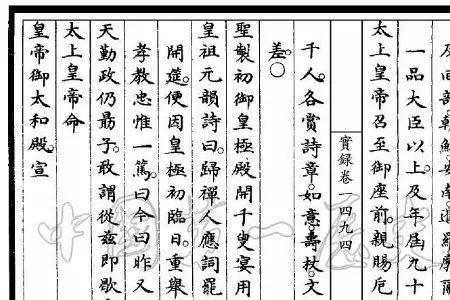 及回部朝鮮。安南。暹羅。廓爾
一品大臣以上。及年屆九十
太上皇帝召至御座前。親賜卮
實錄卷一四九四
千人。各賞詩章。如意。壽杖。文
差。○
聖製初御皇極殿開千叟宴用
皇祖元韻詩曰。歸禪人應詞罷
開筵。便因皇極初臨日。重舉
孝教忠惟一篤。曰今曰昨又
天勤政仍勗子。敢謂從茲即歇
太上皇帝命
皇帝御太和殿。宣
中国第一历史